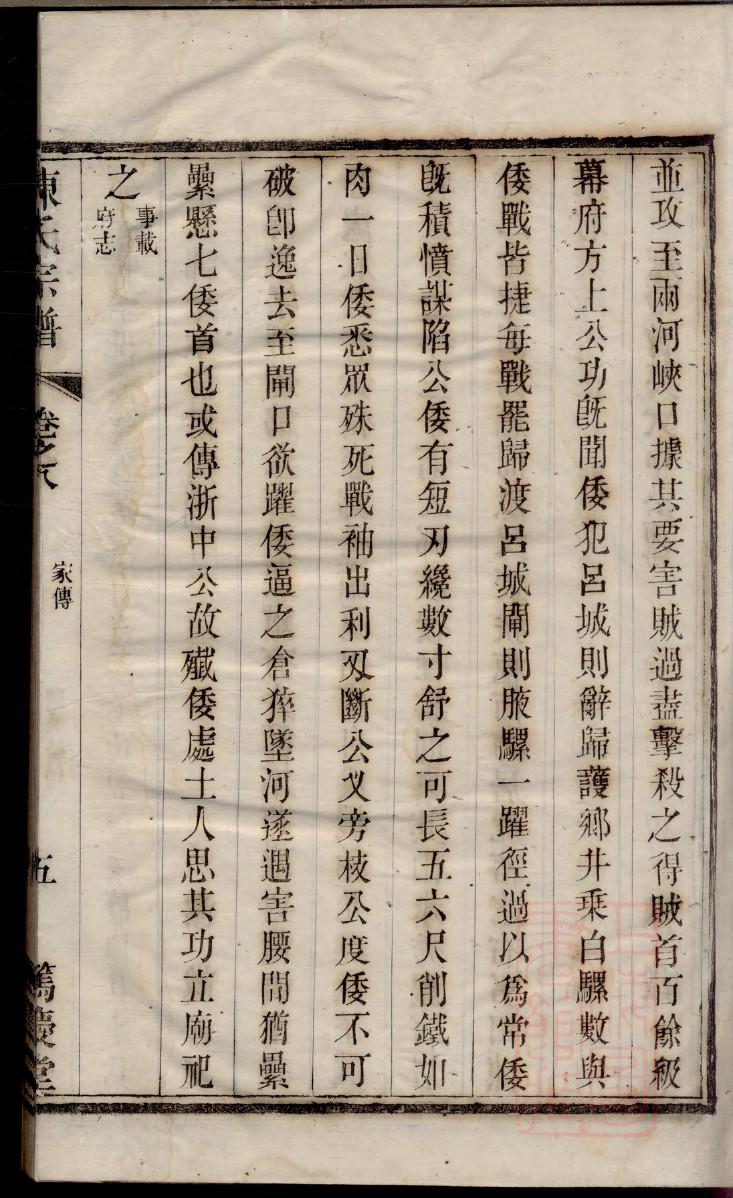 並攻至兩河峽口據其要害賊過盡擊殺之得賊首百餘級
幕府方上公功旣聞倭犯呂城則辭歸護鄉井乘白騾數與
倭戰皆捷每戰罷歸渡呂城閘則腋騾一躍徑過以爲常倭
旣積憤謀陷公倭有短刃纔數寸舒之可長五六尺削鐵如
肉一日倭悉眾殊死戰袖出利刄斷公叉旁枝公度倭不可
破卽逸去至閘口欲躍倭逼之倉猝墜河遂遇害腰間猶纍
纍懸七倭首也或傳浙中公故殲倭處土人思其功立廟祀
之
事載
府志
陳氏宗譜
卷之八
家傳
五
篤慶堂